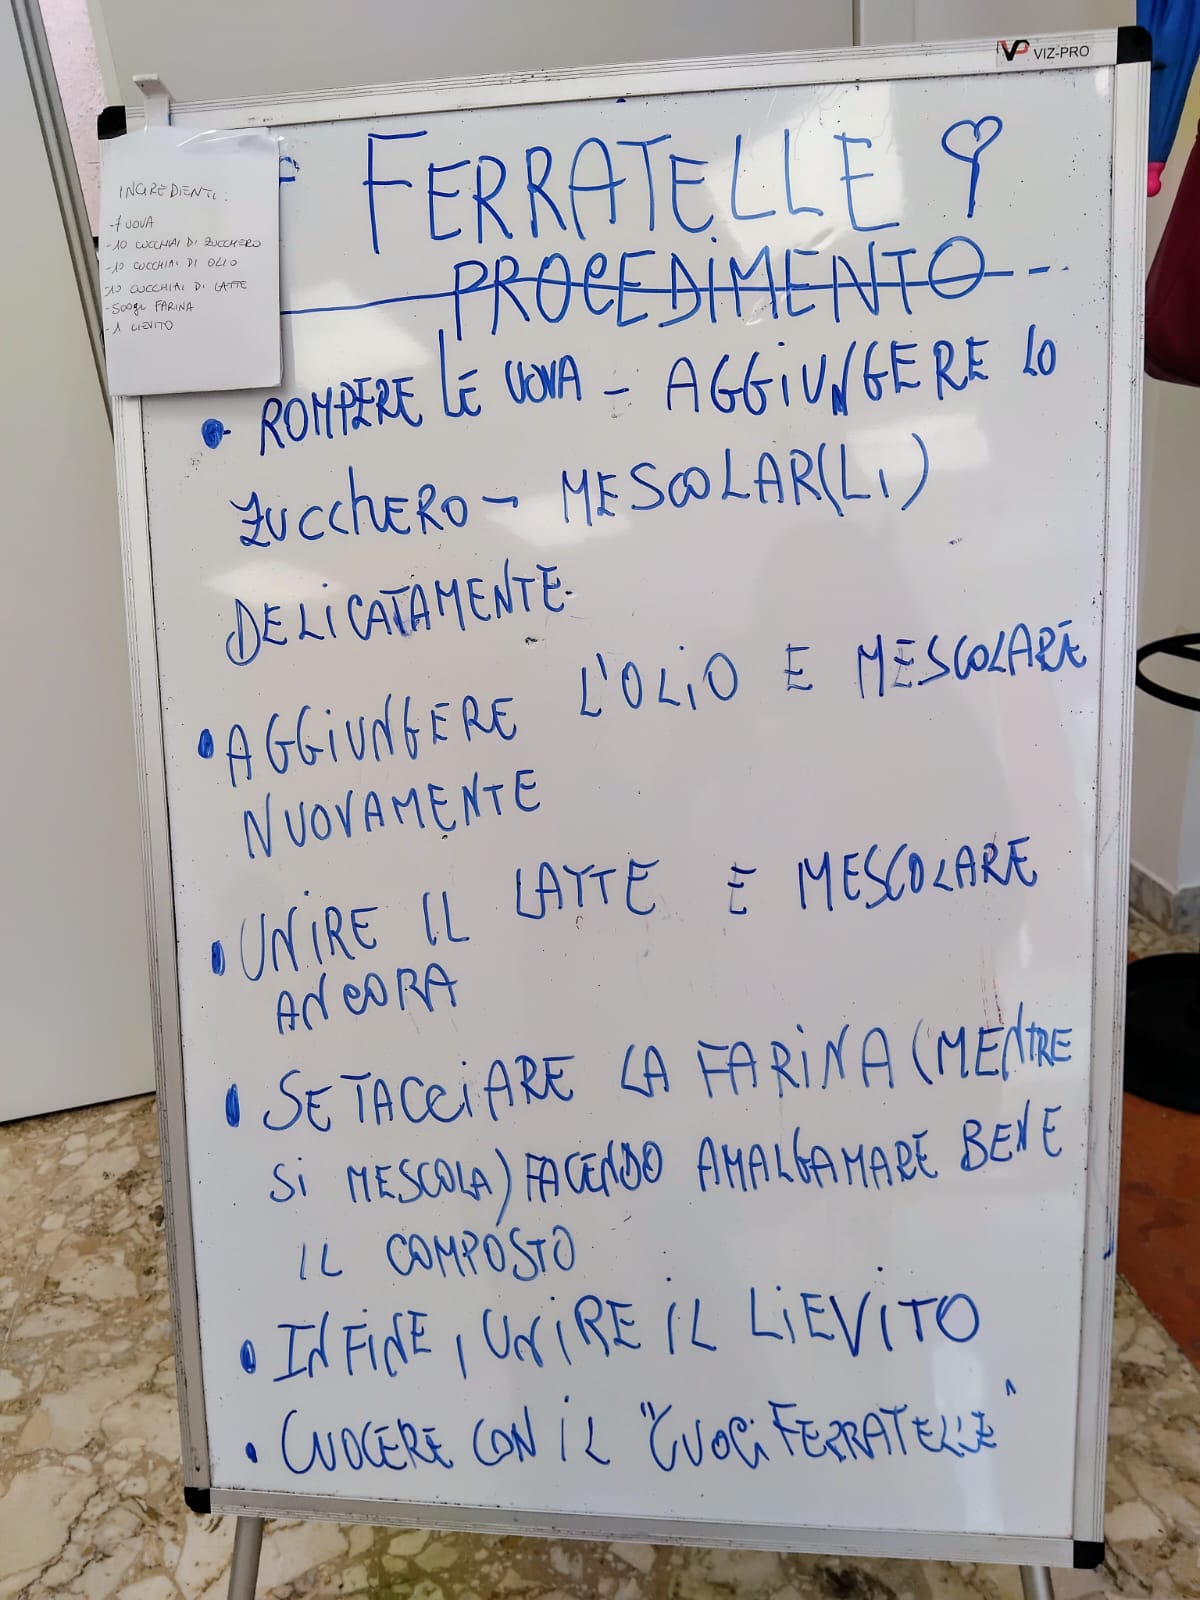 VP VIZ-PRO
FERRATELLE
PROCEDIMENTO
INGREDIENTI:
-7 UOVA
-10 CUCCHIAI DI ZUCCHERO
-10 CUCCHIAI DI OLIO
10 CUCCHIAI DI LATTE
-500gr FARINA
-1 LIEVITO
• ROMPERE LE UOVA - AGGIUNGERE LO
ZUCCHERO - MESCOLAR(LI)
DELICATAMENTE.
• AGGIUNGERE L'OLIO E MESCOLARE
NUOVAMENTE
• UNIRE IL LATTE E MESCOLARE
ANCORA
• SETACCIARE LA FARINA (MENTRE
SI MESCOLA) FACENDO AMALGAMARE BENE
IL COMPOSTO
• INFINE, UNIRE IL LIEVITO
• CUOCERE CON IL "CUOCIFERRATELLE"